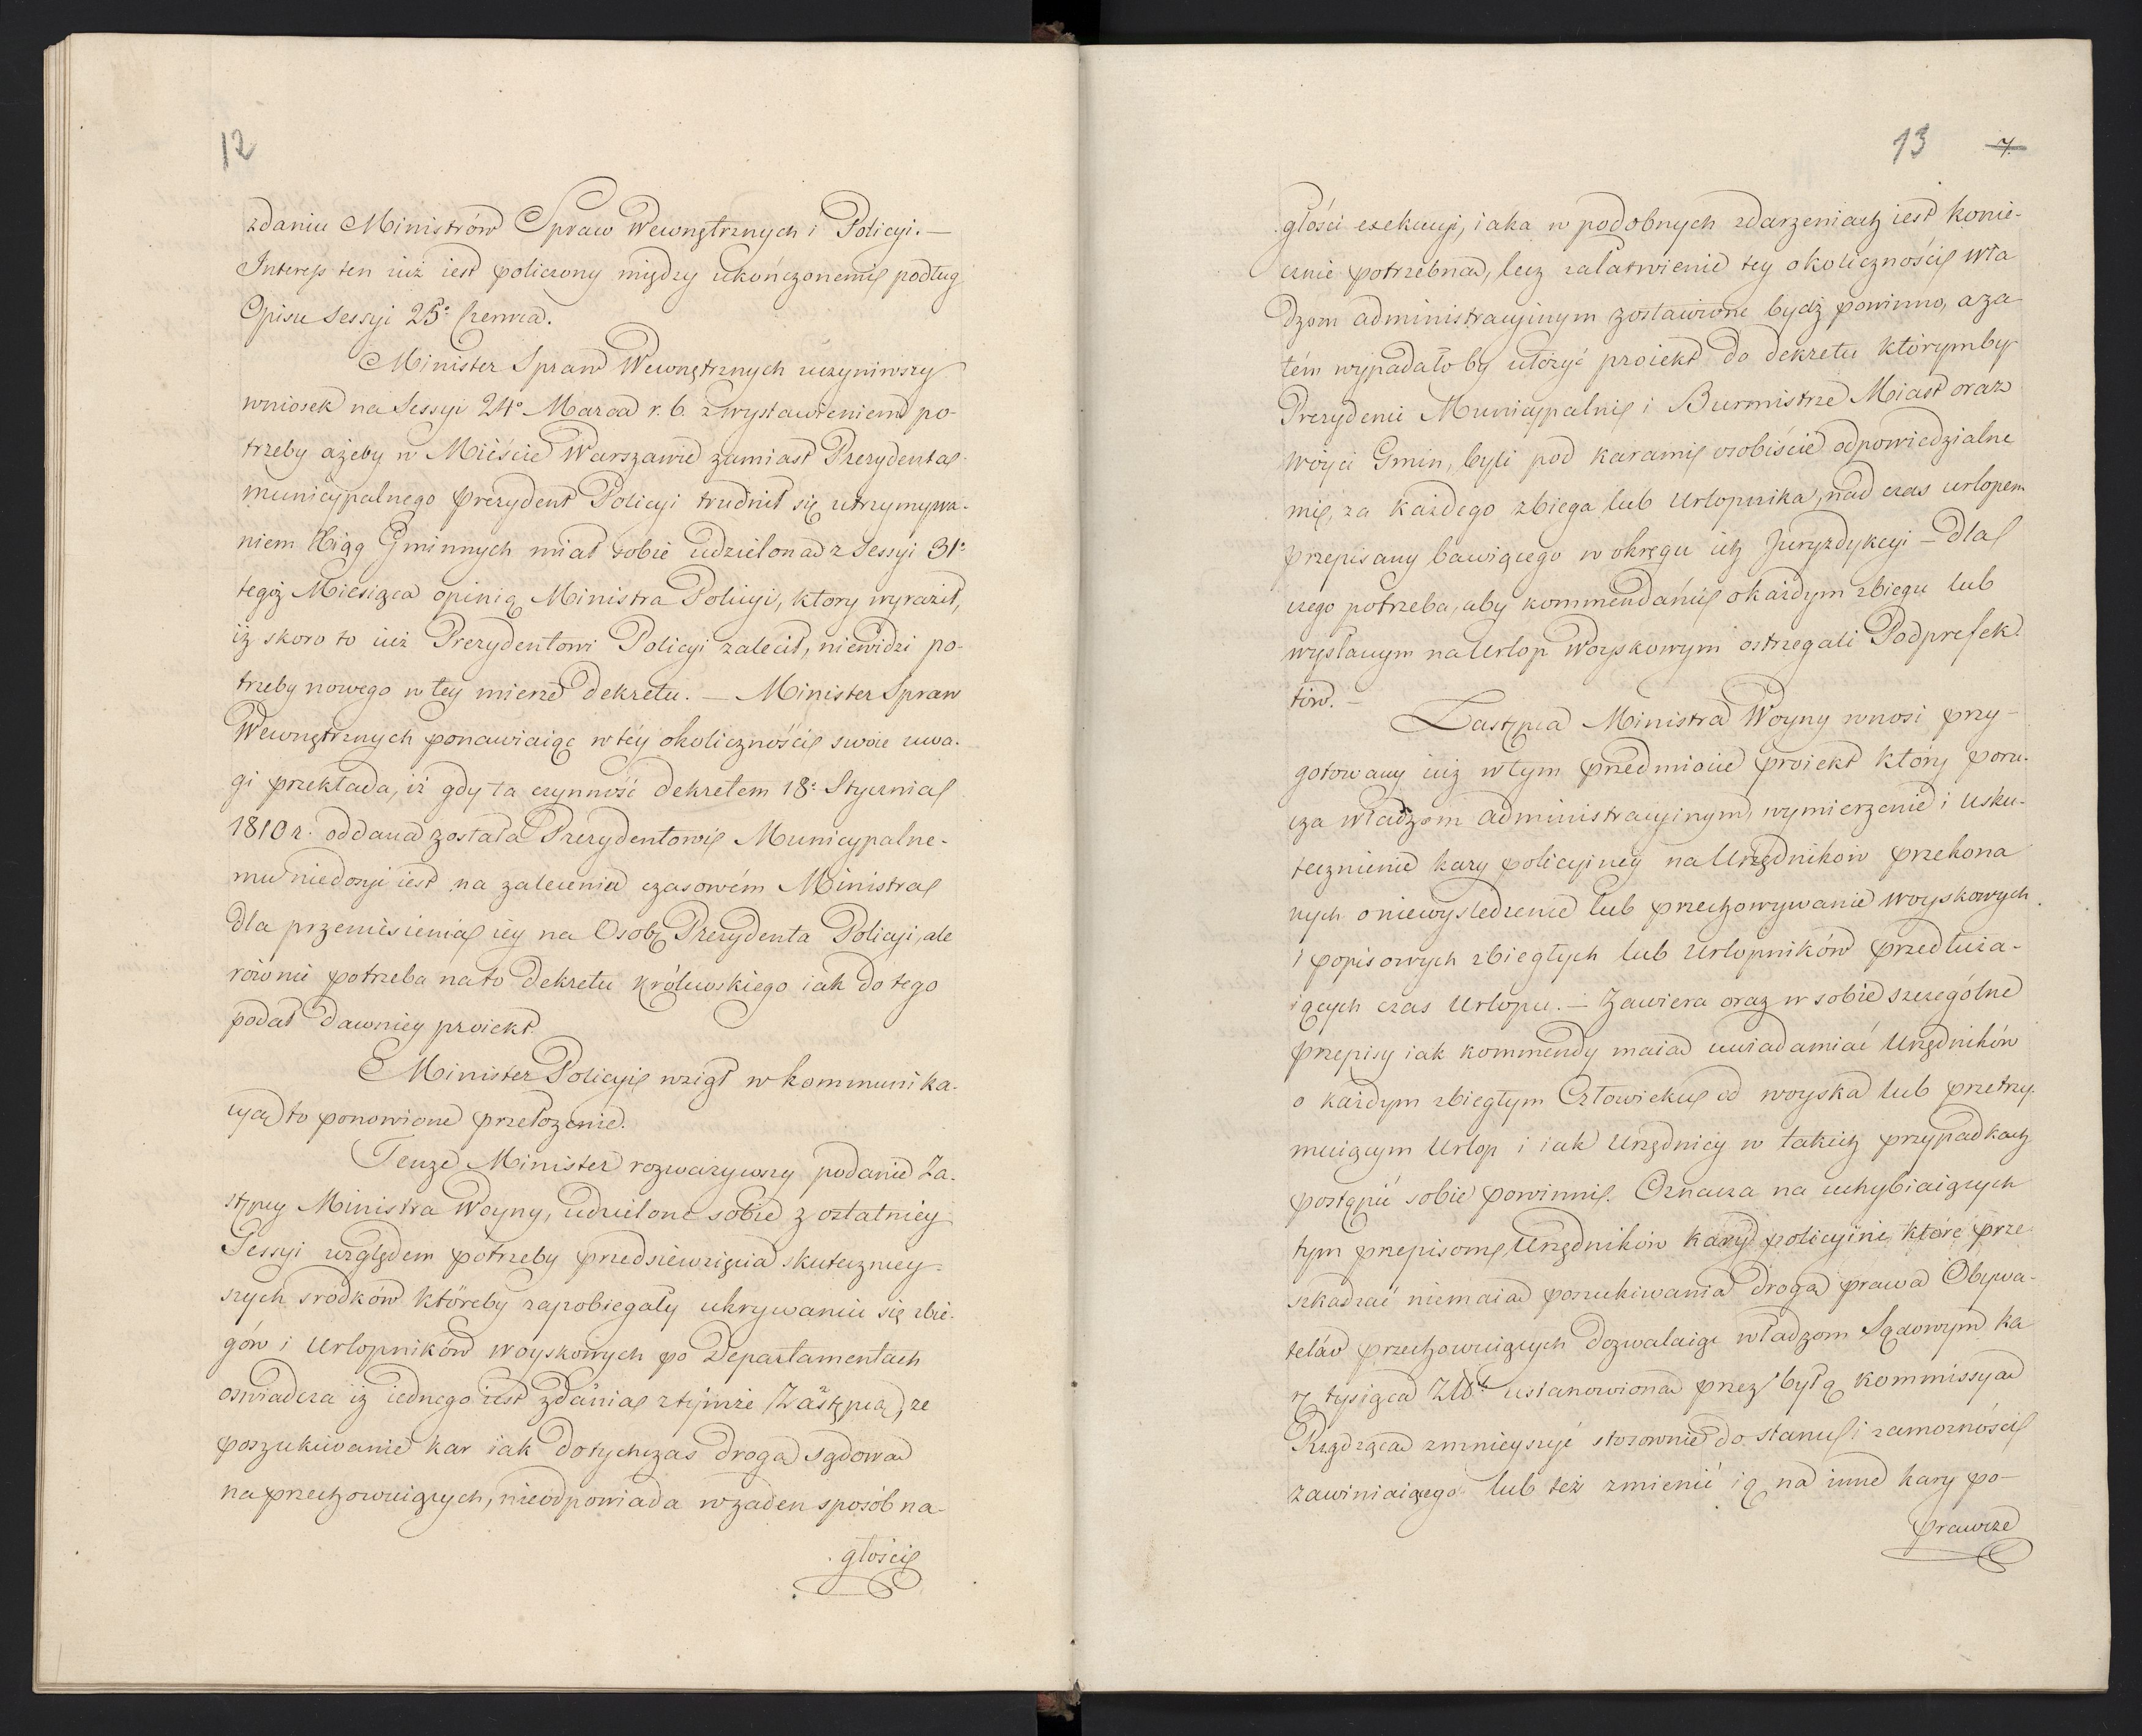 12
zdaniu Ministrów Spraw Wewnętrznych i Policyi. —
Interess ten iuż iest policzony między ukończonemi podług
Opisu Sessyi 25° Czerwca.
Minister Spraw Wewnętrznych uczyniwszy
wniosek na Sessyi 24° Marca r. b. z wystawieniem po-
trzeby ażeby w Mieście Warszawie zamiast Prezydenta
municypalnego Prezydent Policyi trudnił się utrzymywa-
niem Xiąg Gminnych miał sobie udzieloną z Sessyi 31°
tegoż Miesiąca opinią Ministra Policyi, ktory wyraził,
iż skoro to iuż Prezydentowi Policyi zalecił, niewidzi po-
trzeby nowego w tey mierze dekretu. — Minister Spraw
Wewnętrznych ponawiaiąc w téy okoliczności swoie uwa-
gi przekłada, iż gdy ta czynność dekretem 18° Stycznia
1810 r. oddana została Prezydentowi Municypalne-
mu niedosyć iest na zaleceniu czasowém Ministra
dla przeniesienia iey na Osobę Prezydenta Policyi, ale
rownie potrzeba na to Dekretu Królewskiego iak do tego
podał dawniey proiekt.
Minister Policyi wziął w kommunika-
cyą to ponowione przełożenie.
Tenże Minister rozważywszy podanie Za-
stępcy Ministra Woyny, udzielone sobie z ostatniey
Sessyi względem potrzeby przedsiewzięcia skuteczniey-
szych srodków któreby zapobiegały ukrywaniu się zbie-
gów i Urlopników woyskowych po Departamentach
oswiadcza iż iednego iest zdania z tymże Zastępcą, że
poszukiwanie kar iak dotychczas drogą sądową
na przechowuiących, nieodpowiada w żaden sposób na-
głości
13 7.
głości exekucyi, iaka w podobnych zdarzeniach iest konie-
cznie potrzebna, lecz załatwienie tey okoliczności Wła
dzom administracyinym zostawione bydź powinno, a za
tém wypadałoby ułożyć proiekt do dekretu którymby
Prezydenci Municypalni i Burmistrze Miast oraz
Wóyci Gmin, byli pod karami osobiście odpowiedzialne
mi, za każdego zbiega lub Urlopnika, nad czas urlopem
przepisany bawiącego w okręgu ich Juryzdykcyi — Dla
czego potrzeba, aby kommendanci o każdym zbiegu lub
wysłanym na Urlop Woyskowym ostrzegali Podprefek-
tów. —
Zastępca Ministra Woyny wnosi przy-
gotowany iuż w tym przedmiocie proiekt który poru-
cza władzom administracyinym, wymierzenie i usku-
tecznienie kary policyiney na Urzędników przekona
nych o niewysledzenie lub przechowywanie woyskowych
i popisowych zbiegłych lub Urlopników przedłuża-
iących czas Urlopu. — Zawiera oraz w sobie szczególne
przepisy iak kommendy maią uwiadamiać Urzędników
o każdym zbiegłym Człowieku od woyska lub przetrzy-
muiącym Urlop i iak Urzędnicy w takich przypadkach
postąpić sobie powinni. Oznacza na uchybiaiących
tym przepisom Urzędników kary policyine, które prze
szkadzać niemaią poszukiwania drogą prawa Obywa-
telów przechowuiących dozwalaiąc władzom Sądowym ka
rę tysiąca Złł. ustanowioną przez byłą Kommissyą
Rządzącą zmnieyszyć stosownie do stanu i zamożności
zawiniaiącego lub też zmienić ią na inne kary po-
prawcze